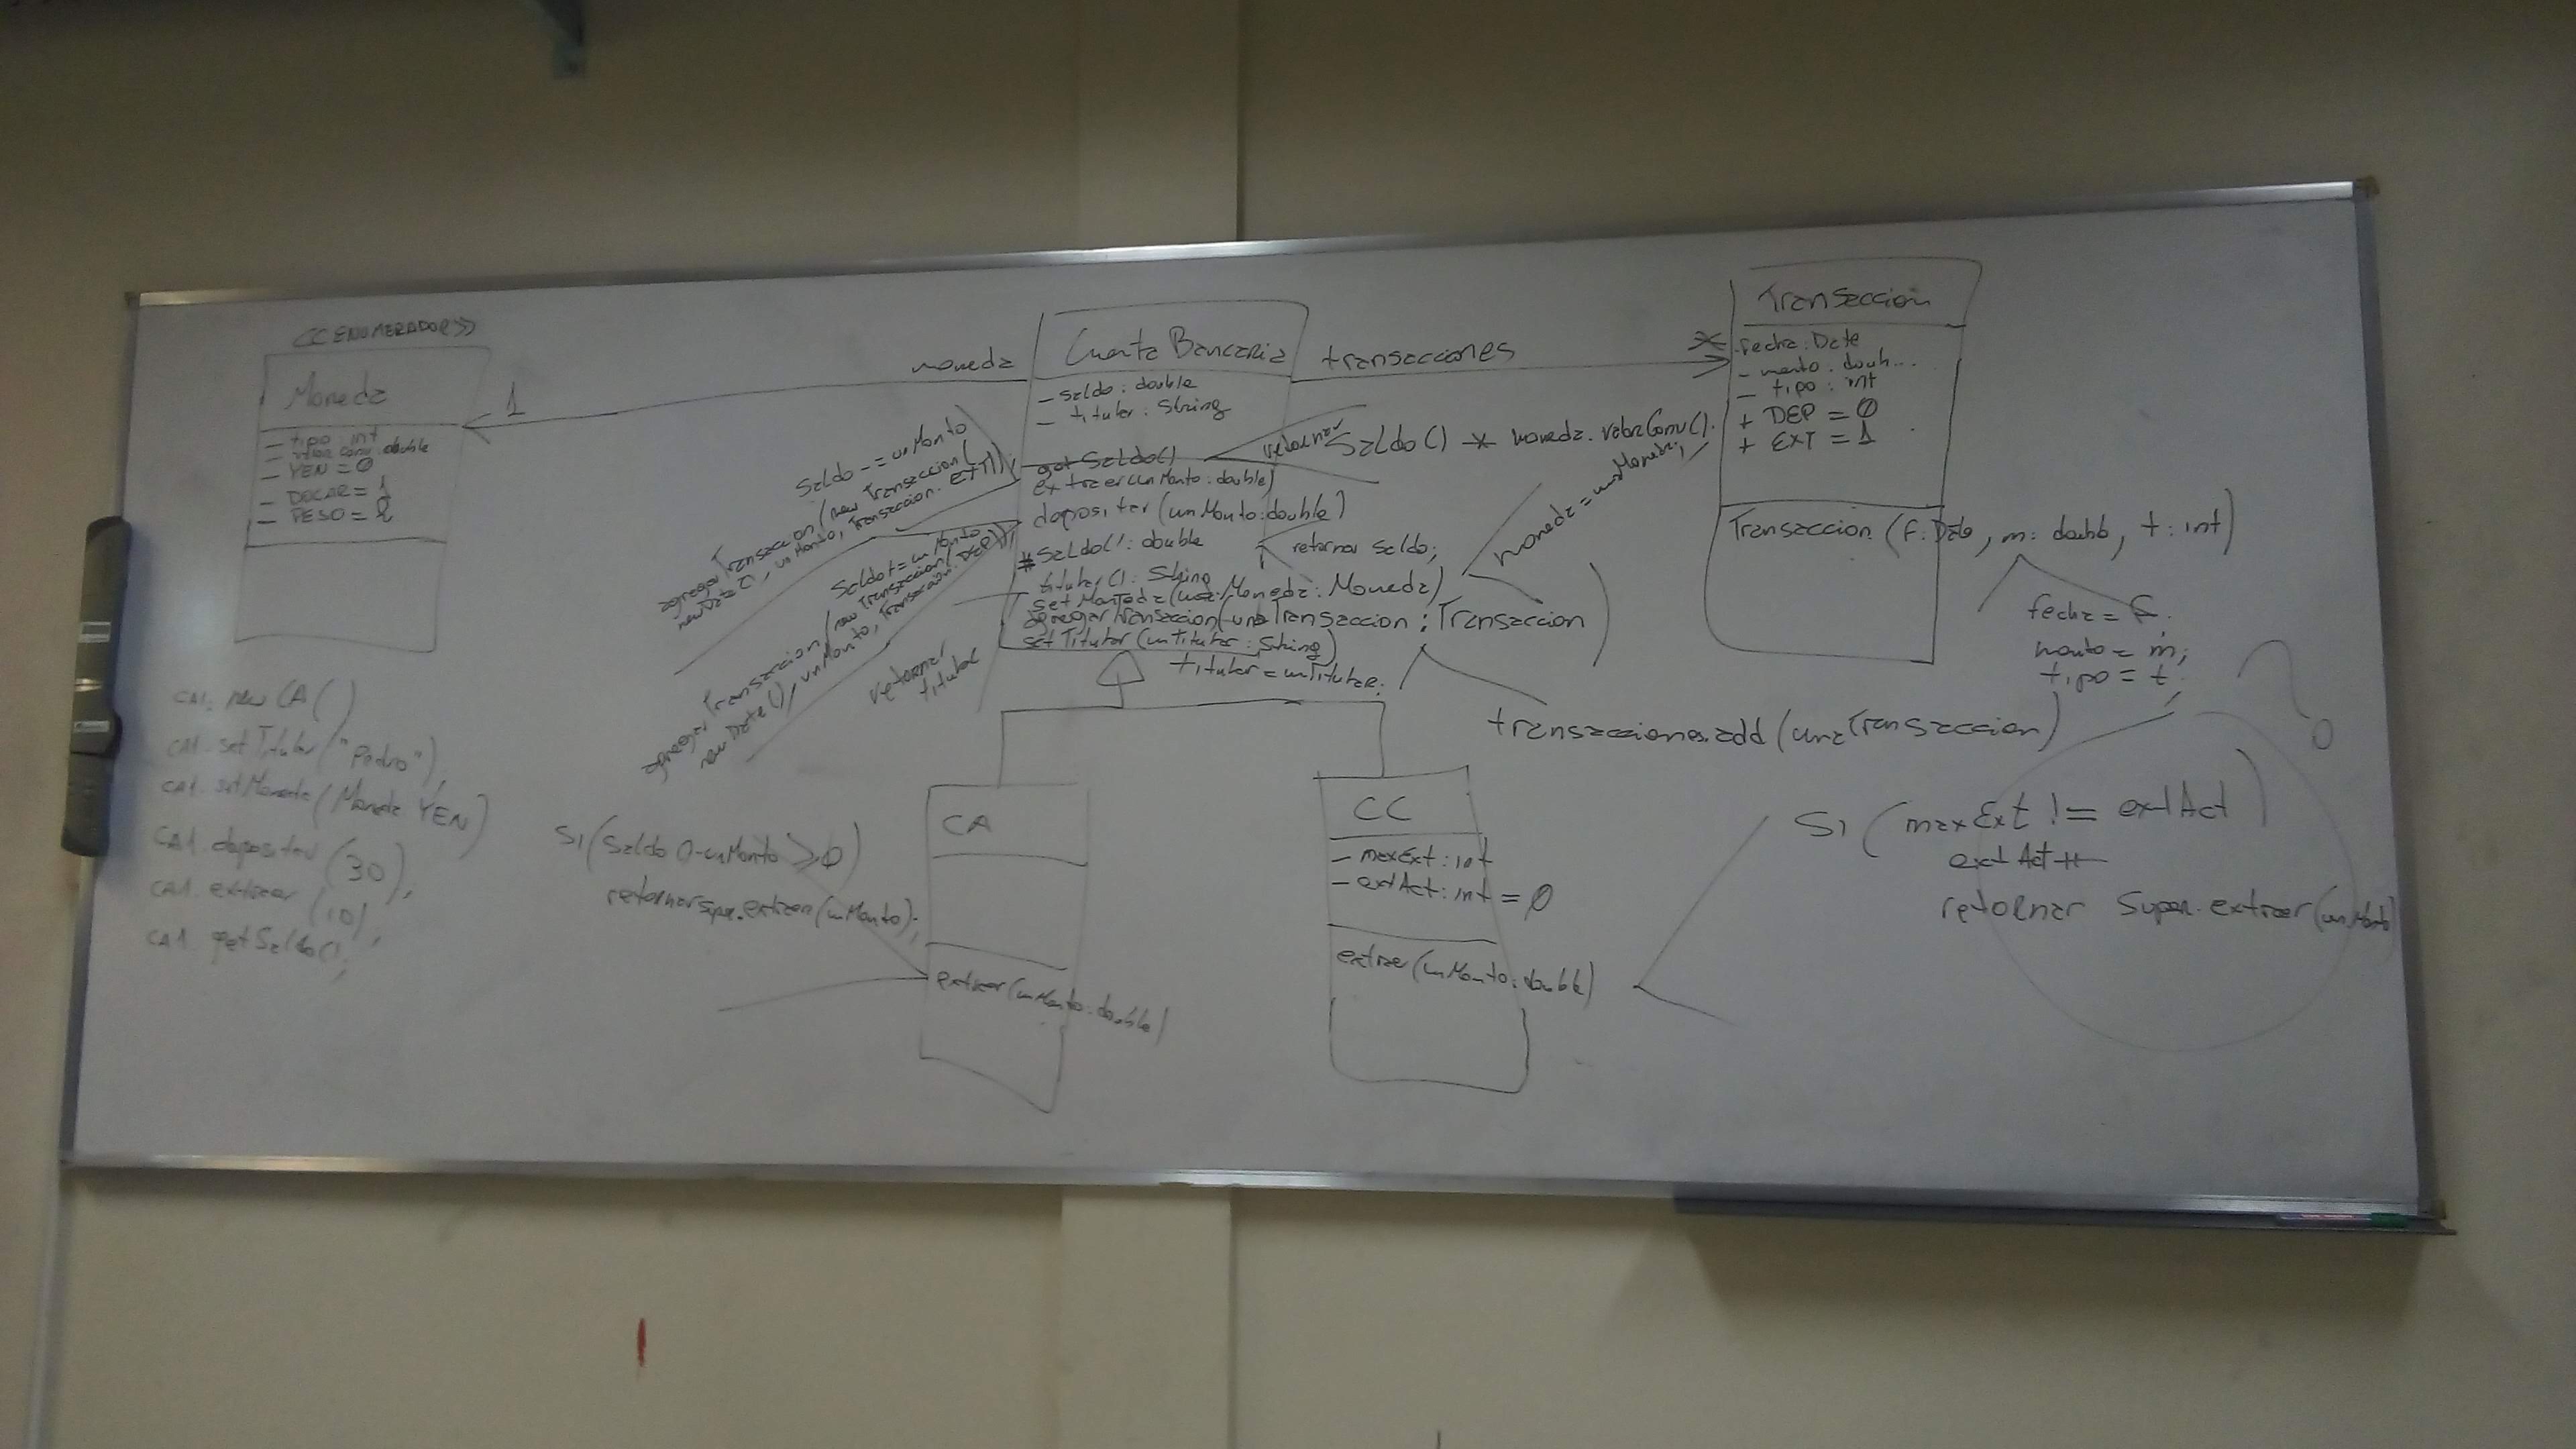 <<ENUMERADOR>>
Moneda
- tipo: int
- valor conv: double
- YEN = 0
- DOLAR = 1
- PESO = 2
1
moneda
Cuenta Bancaria
- saldo: double
- titular: String
-
getSaldo()
extraer(unMonto: double)
depositar (unMonto: double)
# saldo(): double
titular(): String
setMoneda (una Moneda: Moneda)
agregarTransaccion(unaTransaccion: Transaccion
set Titular (unTitular: String)
titular = unTitular;
transacciones
*
Transaccion
- fecha: Date
- monto: doub...
- tipo: int
+ DEP = 0
+ EXT = 1
Transaccion (f: Date, m: doubb, t: int)
fecha = f;
monto = m;
tipo = t
retornar Saldo() * moneda.valorConv().
moneda = unaMoneda;
retornar saldo;
transacciones.add(unaTransaccion)
Saldo -= unMonto
agregarTransaccion (new Transaccion(
new Date(), unMonto, Transaccion.EXT));
Saldo += unMonto
agregarTransaccion (new Transaccion(
new Date(), unMonto, Transaccion.DEP));
retornar
titular
CA1. new CA()
CA1. setTitular ("Pedro");
CA1. setMoneda (Moneda YEN)
CA1. depositar (30);
CA1. extraer (10);
CA1. getSaldo();
SI (Saldo()-unMonto ≥ 0)
retornar super.extraer(unMonto);
CA
extraer(unMonto: double)
CC
- maxExt: int
- extAct: int = 0
extraer(unMonto: double)
SI (maxExt != extAct)
extAct++
retornar super.extraer(unMonto)
?